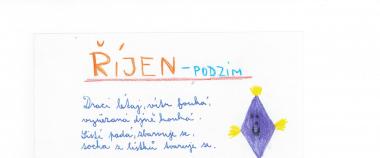 ŘÍJEN - PODZIM
Draci létají, vítr fouká,
vyřezaná dýně kouká.
Listí padá, zbarvuje se,
socha z lístků tvaruje se.